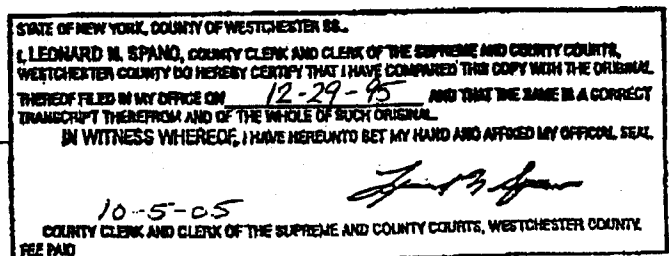 STATE OF NEW YORK, COUNTY OF WESTCHESTER SS..
I, LEONARD N. SPANO, COUNTY CLERK AND CLERK OF THE SUPREME AND COUNTY COURTS,
WESTCHESTER COUNTY DO HEREBY CERTIFY THAT I HAVE COMPARED THIS COPY WITH THE ORIGINAL
THEREOF FILED IN MY OFFICE ON 12-29-95 AND THAT THE SAME IS A CORRECT
TRANSCRIPT THEREFROM AND OF THE WHOLE OF SUCH ORIGINAL.
IN WITNESS WHEREOF, I HAVE HEREUNTO SET MY HAND AND AFFIXED MY OFFICIAL SEAL.
10-5-05
COUNTY CLERK AND CLERK OF THE SUPREME AND COUNTY COURTS, WESTCHESTER COUNTY.
FEE PAID